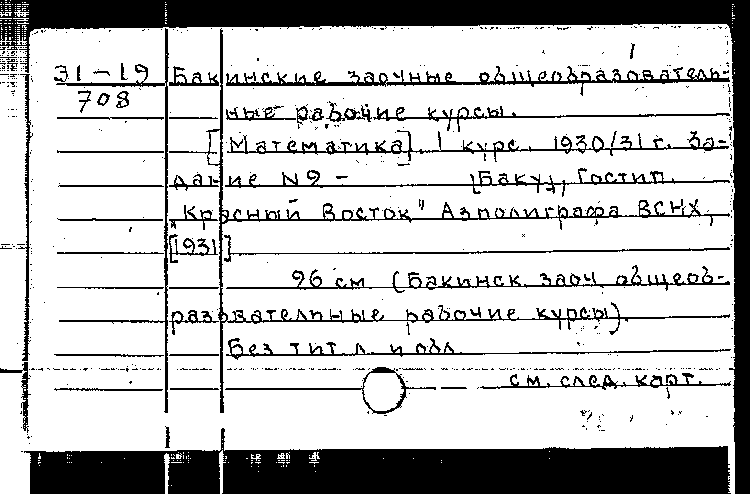 1
31-19 Бакинские заочные общеобразователь-
708 ные рабочие курсы.
[Математика]. 1 курс. 1930/31 г. За-
дание №2 - [Баку], Гостип.
"Красный Восток" Азполиграфа ВСНХ,
[1931]
26 см. (Бакинск. заоч. общеоб-
разовательные рабочие курсы).
Без тит. л. и обл.
см. след. карт.